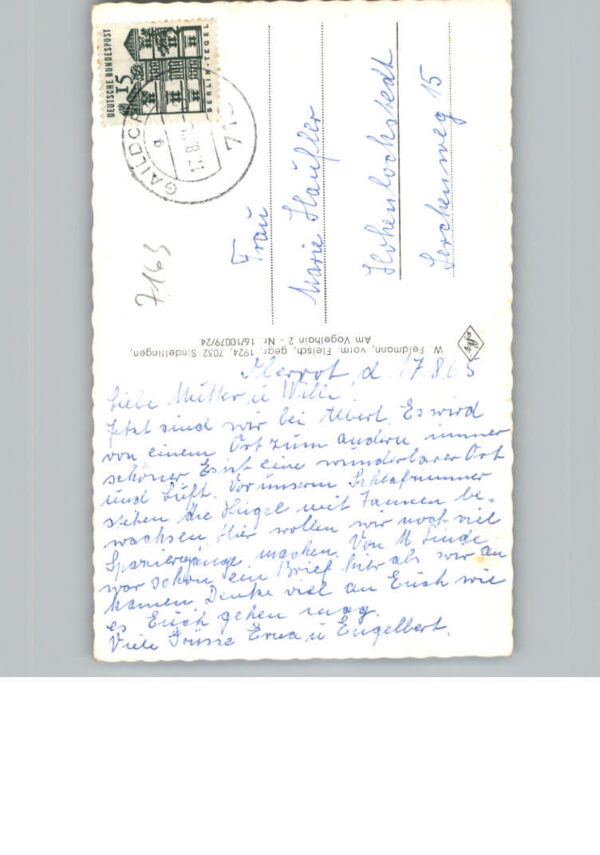 DEUTSCHE BUNDESPOST
15
BERLIN-TEGEL
GAILDO
a
17.8.
71
7163
Frau
Marie Häufler
Hohenlochstedt
Lerchenweg 15
W. Feldmann, vorm. Fleisch, gegr. 1924, 7032 Sindelfingen,
Am Vogelhain 2 - Nr. 16/10079/24
d. 17.8.65
Liebe Mutter u Willi!
Jetzt sind wir bei Albert. Es wird
von einem Ort zum andern immer
schöner Es ist eine wunderbarer Ort
und Luft. Vor unserm Schlafzimmer
stehen die Hügel mit Tannen be-
wachsen Hier wollen wir noch viel
Spaziergänge machen. Von
war schon ein Brief hier als wir an
kamen. Denke viel an Euch wie
es Euch gehen mag.
Viele Grüsse Erna u Engelbert.